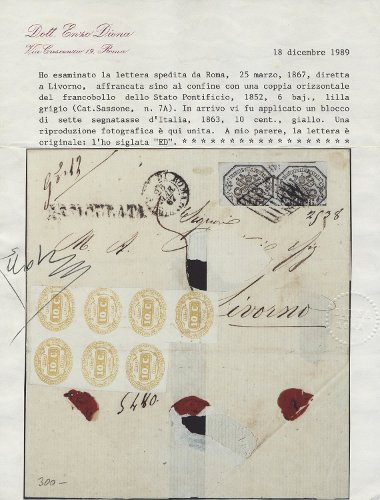 Dott. Enzo Diena
Via Crescenzio 19, Roma
18 dicembre 1989
Ho esaminato la lettera spedita da Roma, 25 marzo, 1867, diretta
a Livorno, affrancata sino al confine con una coppia orizzontale
del francobollo dello Stato Pontificio, 1852, 6 baj., lilla
grigio (Cat.Sassone, n. 7A). In arrivo vi fu applicato un blocco
di sette segnatasse d'Italia, 1863, 10 cent., giallo. Una
riproduzione fotografica è qui unita. A mio parere, la lettera è
originale: l'ho siglata "ED". * * * * * * * * * * * * * * * *
ROMA
ASSICURATA
Signore
2528
Livorno
10 C. 10 C. 10 C. 10 C.
10 C. 10 C. 10 C.
5480
300-